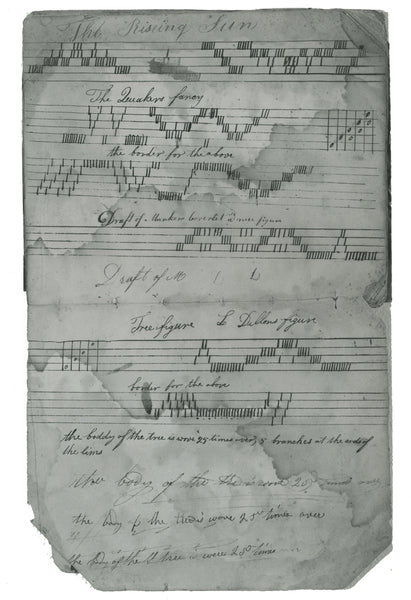 The Rising Sun
The Quakers fancy
the border for the above
Draft of figure
Draft of M
Tree figure figure
border for the above
the boddy of the tree is wove 25 times over, 5 branches at the ends of
the
the body of the tree is wove 25 times over
the body of the tree is wove 25 times over
the body of the tree is wove 25 times